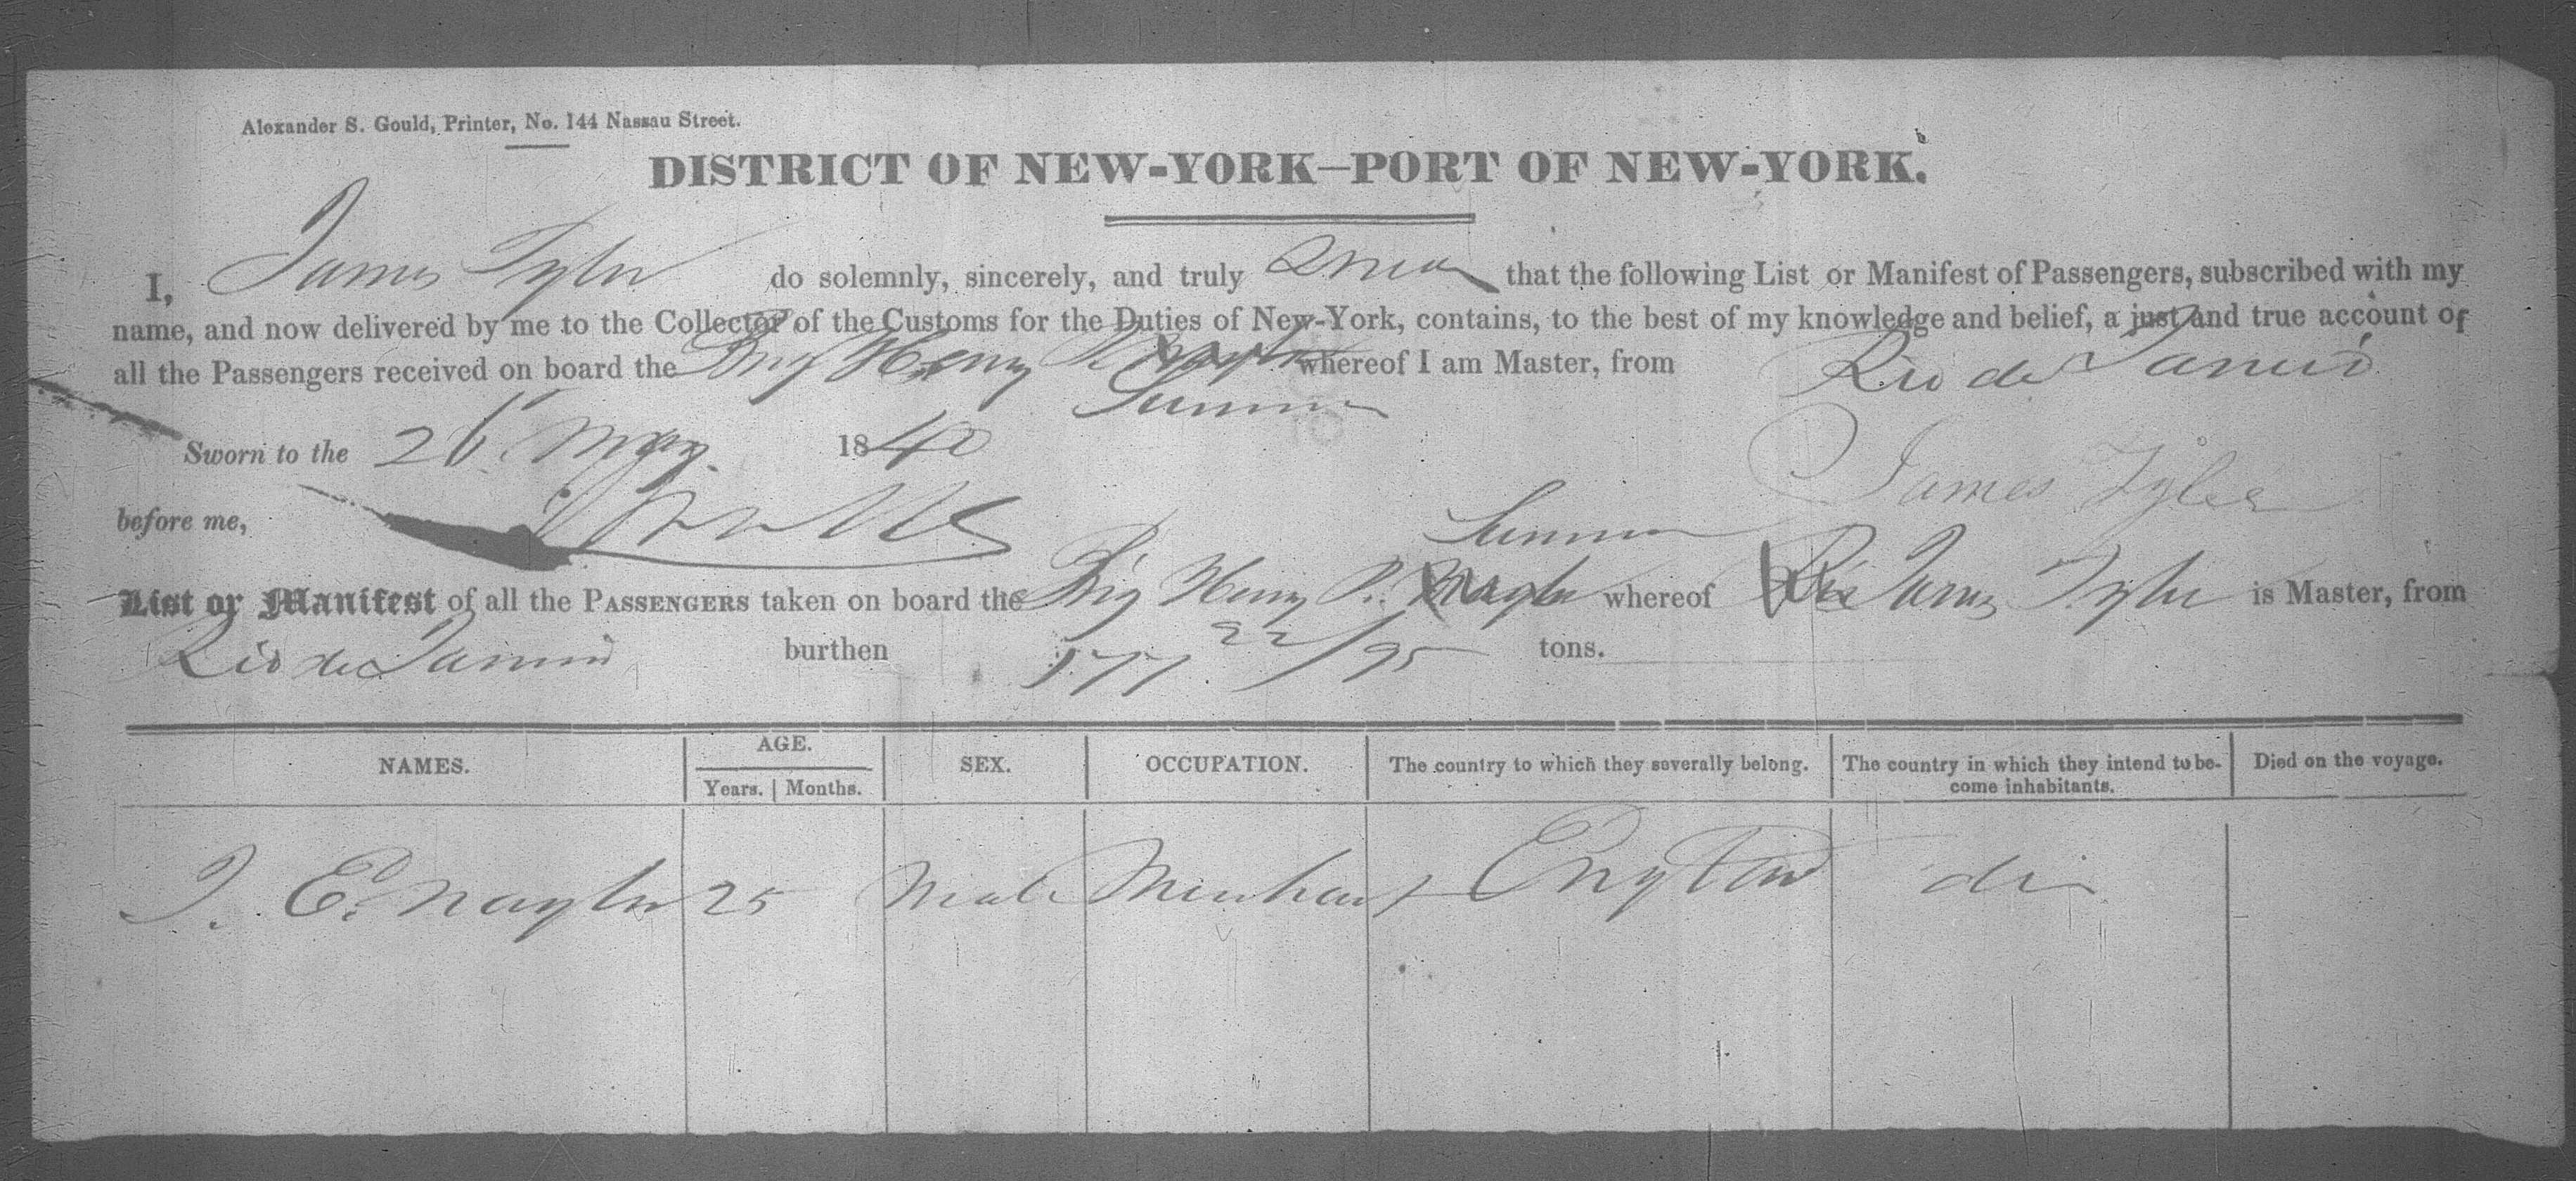 Alexander S. Gould, Printer, No. 144 Nassau Street.
DISTRICT OF NEW-YORK—PORT OF NEW-YORK.
I, James Tyler do solemnly, sincerely, and truly swear that the following List or Manifest of Passengers, subscribed with my
name, and now delivered by me to the Collector of the Customs for the Duties of New-York, contains, to the best of my knowledge and belief, a just and true account of
all the Passengers received on board the Brig Henry whereof I am Master, from Rio de Janeiro
Sumner
Sworn to the 26 May 1840
James Tyler
before me,
Sumner
List or Manifest of all the PASSENGERS taken on board the Brig Henry R. Naylor whereof James Tyler is Master, from
Rio de Janeiro burthen 177 22/95 tons.
NAMES. AGE. SEX. OCCUPATION. The country to which they severally belong. The country in which they intend to be- Died on the voyage.
Years. Months. come inhabitants.
J. E. Naylor 25 Male Merchant England do